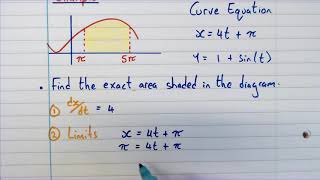 Curve Equation
x = 4t + π
y = 1 + sin(t)
π
5π
• Find the exact area shaded in the diagram.
① dx/dt = 4
② Limits
x = 4t + π
π = 4t + π